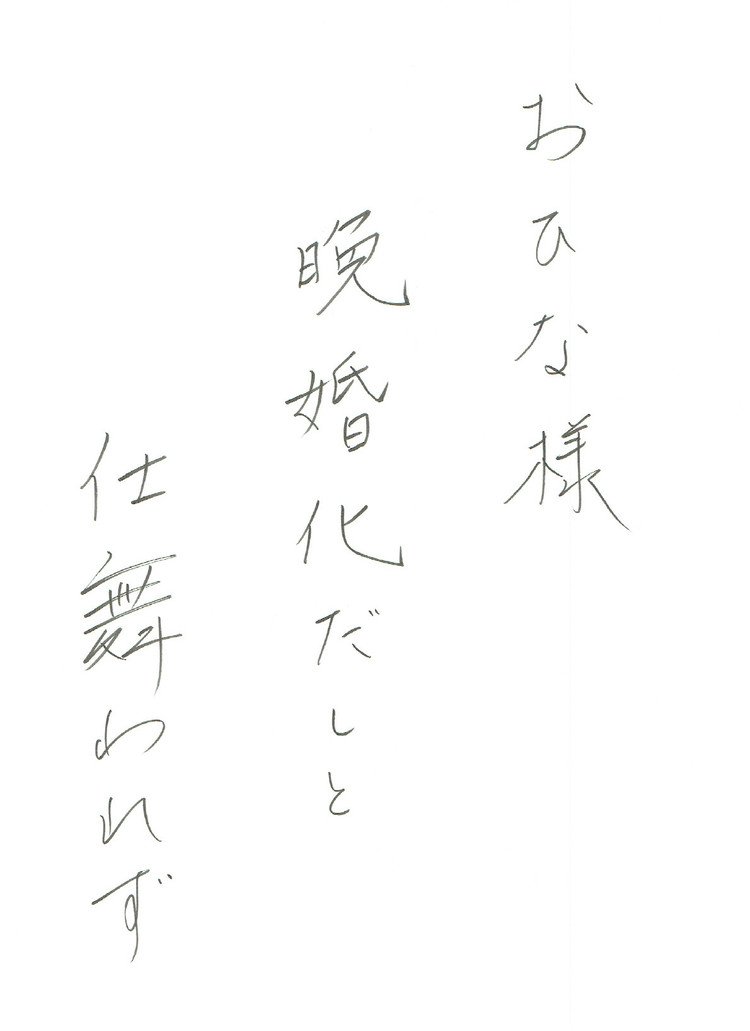 おひな様
晩婚化だしと
仕舞われず